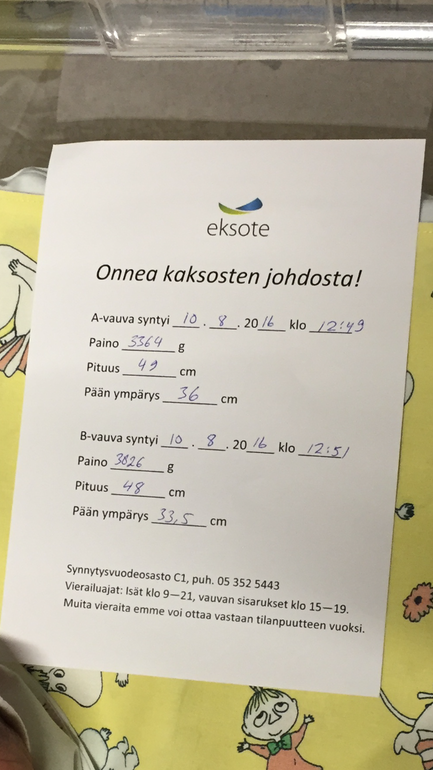 eksote
Onnea kaksosten johdosta!
A-vauva syntyi 10 . 8 . 2016 klo 12:49
Paino 3364 g
Pituus 49 cm
Pään ympärys 36 cm
B-vauva syntyi 10 . 8 . 2016 klo 12:51
Paino 3026 g
Pituus 48 cm
Pään ympärys 33,5 cm
Synnytysvuodeosasto C1, puh. 05 352 5443
Vierailuajat: Isät klo 9—21, vauvan sisarukset klo 15—19.
Muita vieraita emme voi ottaa vastaan tilanpuutteen vuoksi.